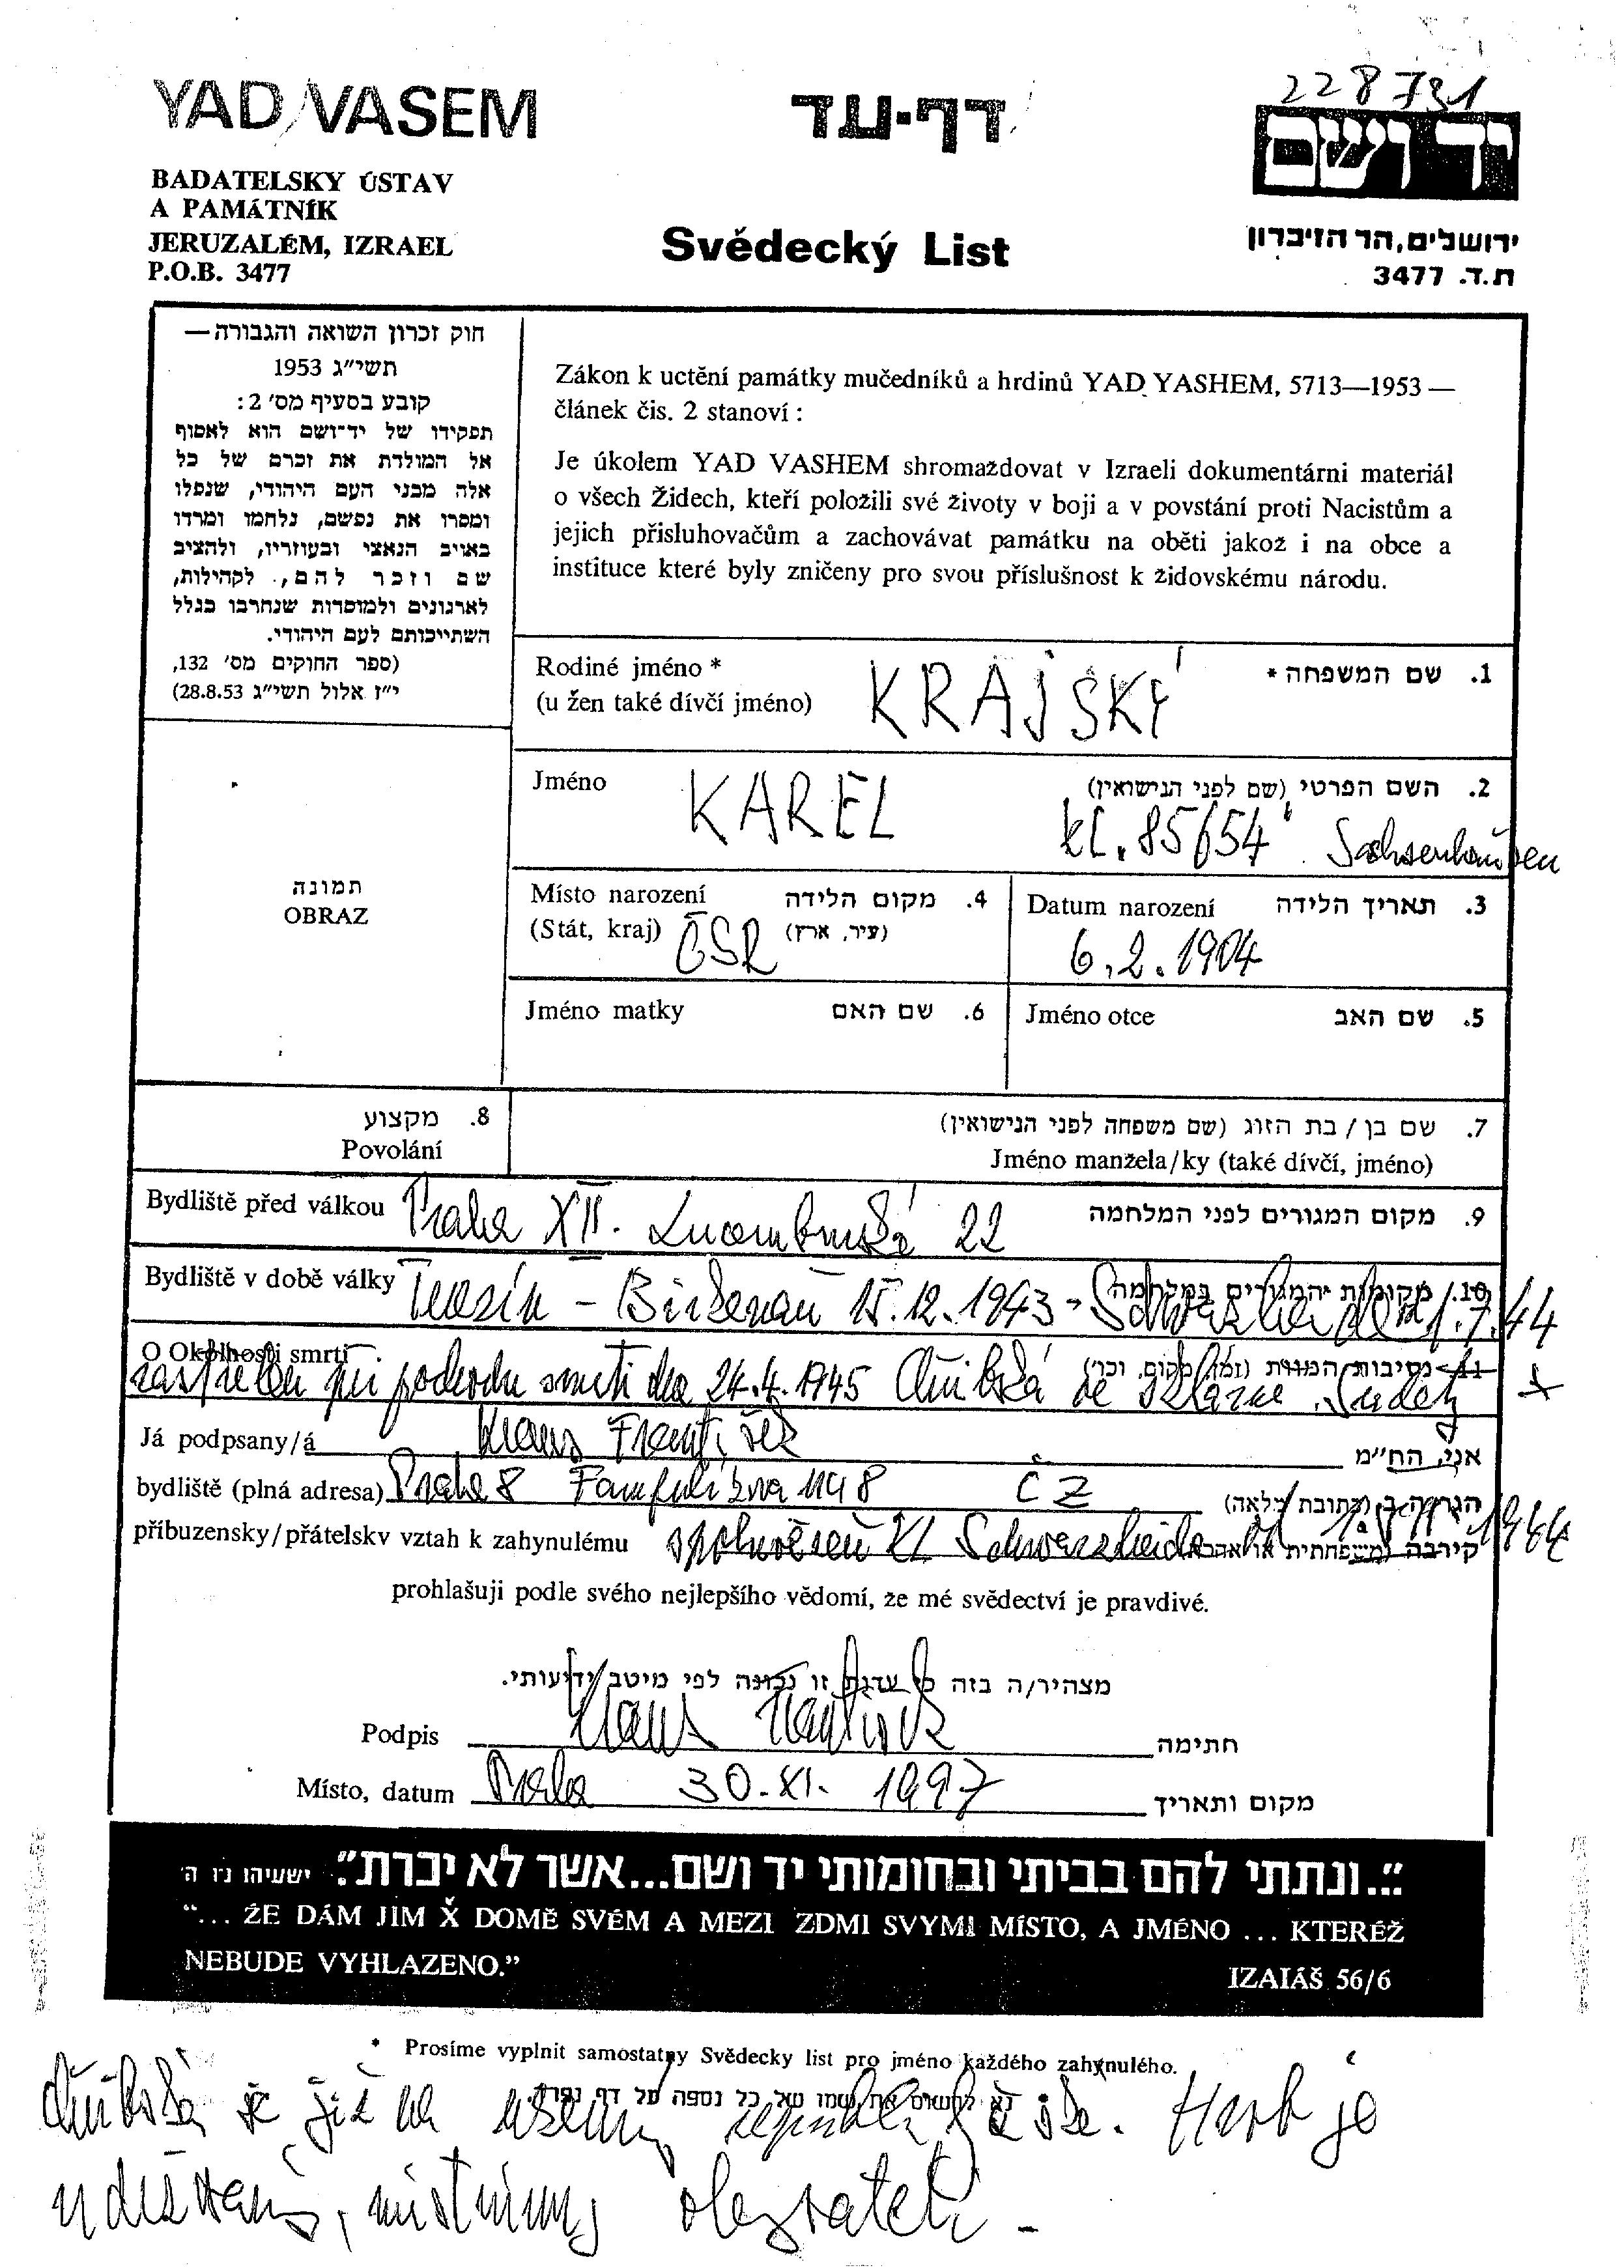 228731
YAD VASEM
דף-עד
יד ושם
BADATELSKY ÚSTAV
A PAMÁTNÍK
JERUZALÉM, IZRAEL
P.O.B. 3477
Svědecký List
ירושלים, הר הזיכרון
ת.ד. 3477
חוק זכרון השואה והגבורה—
תשי״ג 1953
קובע בסעיף מס׳ 2:
תפקידו של יד־ושם הוא לאסוף
אל המולדת את זכרם של כל
אלה מבני העם היהודי, שנפלו
ומסרו את נפשם, נלחמו ומרדו
באויב הנאצי ובעוזריו, ולהציב
שם וזכר להם, לקהילות,
לארגונים ולמוסדות שנחרבו בגלל
השתייכותם לעם היהודי.
(ספר החוקים מס׳ 132,
י״ז אלול תשי״ג 28.8.53)
Zákon k uctění památky mučedníků a hrdinů YAD YASHEM, 5713—1953 —
článek čis. 2 stanoví :
Je úkolem YAD VASHEM shromažďovat v Izraeli dokumentárni materiál
o všech Židech, kteří položili své životy v boji a v povstání proti Nacistům a
jejich přisluhovačům a zachovávat památku na oběti jakož i na obce a
instituce které byly zničeny pro svou příslušnost k židovskému národu.
Rodiné jméno * KRAJSKÝ 1. שם המשפחה *
(u žen také dívčí jméno)
Jméno KAREL 2. השם הפרטי (שם לפני הנישואין)
kl. 85654 Sachsenhausen
Místo narození 4. מקום הלידה
(Stát, kraj) ČSR (עיר, ארץ)
Datum narození 3. תאריך הלידה
6.2.1904
Jméno matky 6. שם האם
Jméno otce 5. שם האב
תמונה
OBRAZ
8. מקצוע
Povolání
7. שם בן / בת הזוג (שם משפחה לפני הנישואין)
Jméno manžela/ky (také dívčí, jméno)
Bydliště před válkou Praha XII. 22 9. מקום המגורים לפני המלחמה
Bydliště v době války Terezín – Birkenau 15.12.1943 – Schwarzheide 1.7.44 10. מקומות המגורים במלחמה
O Okolnosti smrti 11. נסיבות המוות (זמן, מקום, וכו׳)
zastřelen při pochodu smrti dne 24.4.1945 Chřibská
Já podpsany/á Kraus František אני, הח״מ
bydliště (plná adresa) Praha 8 1148 ČZ הגר/ה ב (כתובת מלאה)
příbuzensky/přátelskv vztah k zahynulému spoluvězeň KL Schwarzheide 1944
prohlašuji podle svého nejlepšího vědomí, že mé svědectví je pravdivé.
מצהיר/ה בזה כי עדות זו נכונה לפי מיטב ידיעותי.
Podpis Kraus František חתימה
Místo, datum Praha 30.XI. 1997 מקום ותאריך
״...ונתתי להם בביתי ובחומותי יד ושם...אשר לא יכרת״. ישעיהו נ״ו ה׳
“... ŽE DÁM JIM X̌ DOMĚ SVÉM A MEZI ZDMI SVYMI MÍSTO, A JMÉNO ... KTERÉŽ
NEBUDE VYHLAZENO.”
IZAIÁŠ 56/6
* Prosíme vyplnit samostatny Svědecky list pro jméno každého zahynulého.
נא לרשום את שמו של כל נספה על דף נפרד.
Chřibská je již na území Herb je
udržovaný, místními obyvateli –